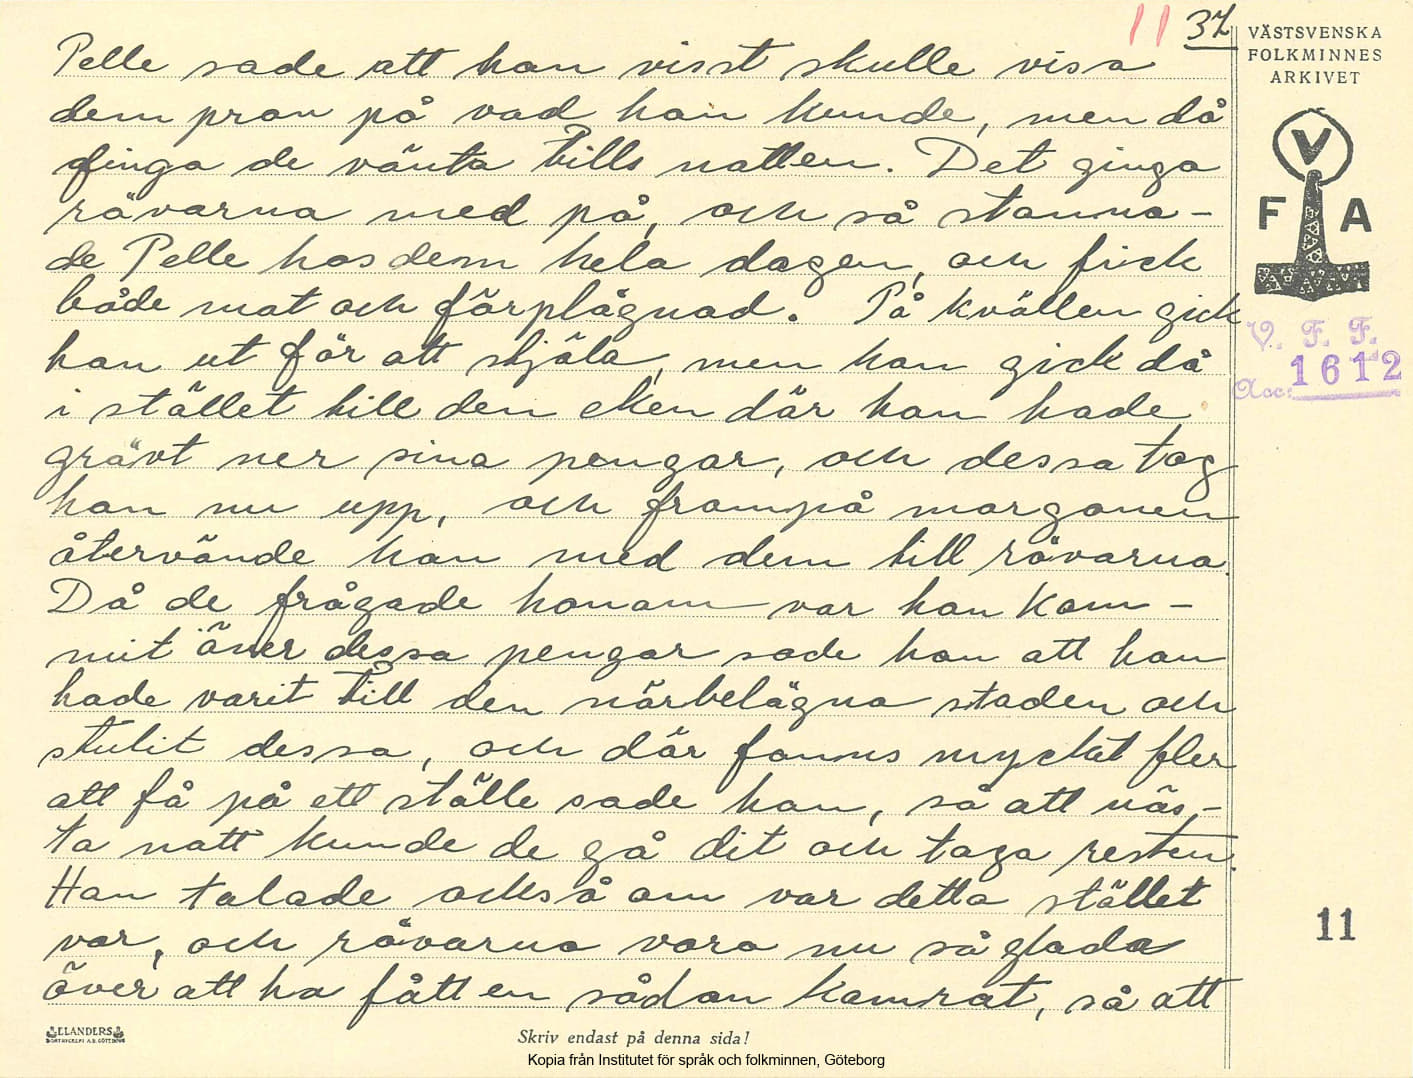 11 37
VÄSTSVENSKA
FOLKMINNES
ARKIVET
V
F A
V. F. F.
Acc: 1612
Pelle sade att han visst skulle visa
dem prov på vad han kunde, men då
finga de vänta tills natten. Det ginga
rövarna med på, och så stanna-
de Pelle hos dem hela dagen, och fick
både mat och förplägnad. På kvällen gick
han ut för att stjäla, men han gick då
i stället till den eken där han hade
grävt ner sina pengar, och dessa tog
han nu upp, och frampå morgonen
återvände han med dem till rövarna.
Då de frågade honom var han kom-
mit över dessa pengar sade han att han
hade varit till den närbelägna staden och
stulit dessa, och där fanns mycket fler
att få på ett ställe sade han, så att näs-
ta natt kunde de gå dit och taga resten.
Han talade också om var detta stället
var, och rövarna voro nu så glada
över att ha fått en sådan kamrat, så att
11
ELANDERS
BOKTRYCKERI A.B. GÖTEBORG
Skriv endast på denna sida!
Kopia från Institutet för språk och folkminnen, Göteborg